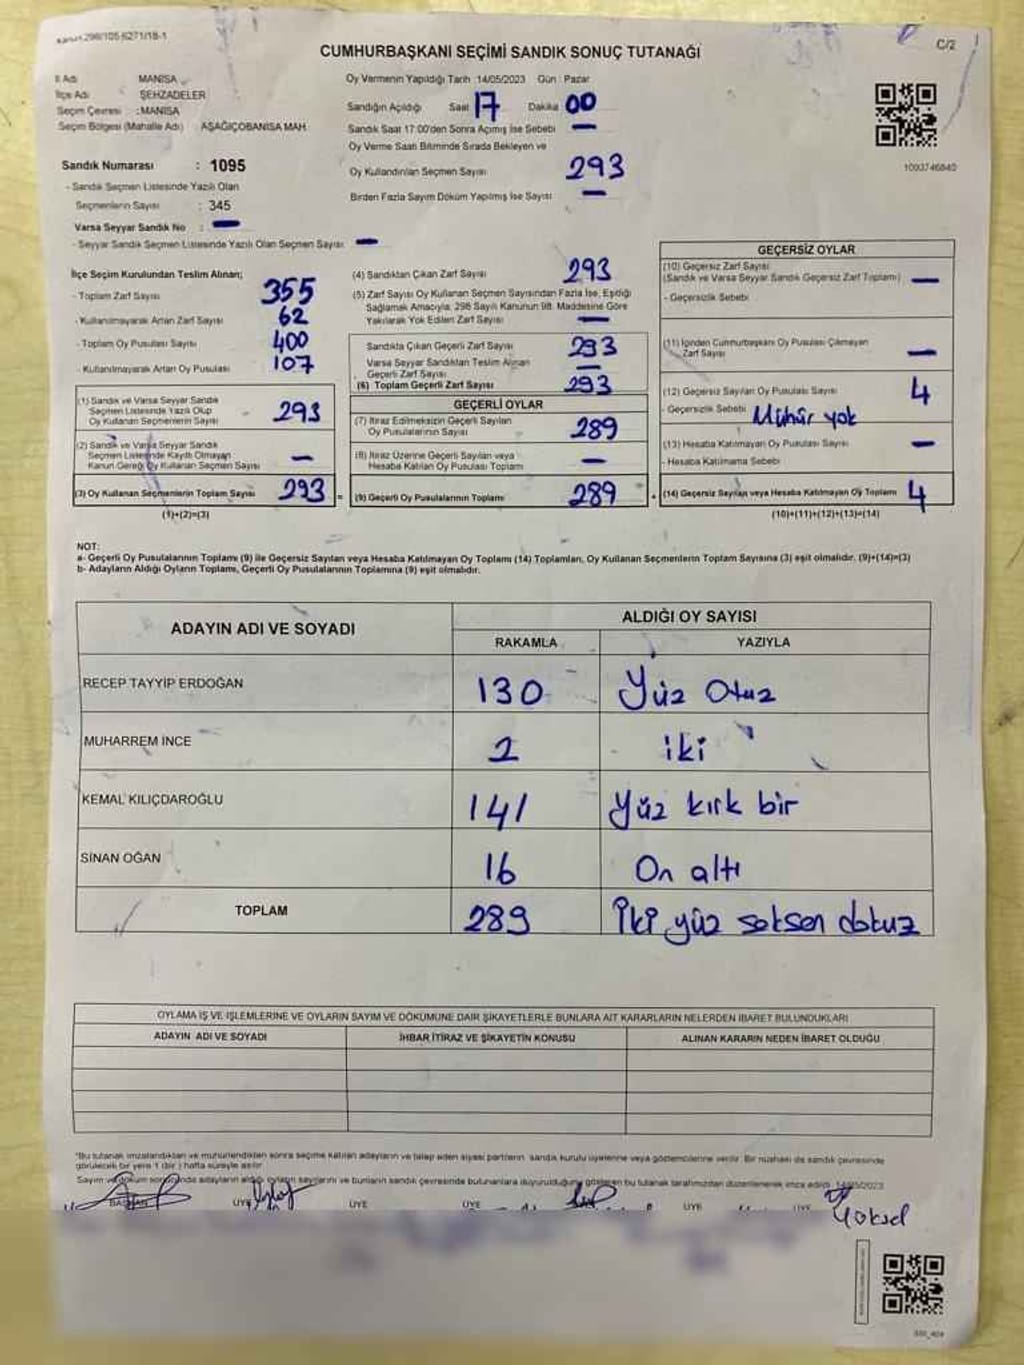 Kanun 298/105-6271/18-1
C/2
CUMHURBAŞKANI SEÇİMİ SANDIK SONUÇ TUTANAĞI
İl Adı MANİSA
İlçe Adı ŞEHZADELER
Seçim Çevresi : MANİSA
Seçim Bölgesi (Mahalle Adı) AŞAĞIÇOBANİSA MAH.
Oy Vermenin Yapıldığı Tarih :14/05/2023 Gün : Pazar
Sandığın Açıldığı Saat 17 Dakika 00
Sandık Saat 17:00'den Sonra Açılmış İse Sebebi —
Oy Verme Saati Bitiminde Sırada Bekleyen ve
Oy Kullandırılan Seçmen Sayısı 293
Birden Fazla Sayım Döküm Yapılmış İse Sayısı —
1093746840
Sandık Numarası : 1095
- Sandık Seçmen Listesinde Yazılı Olan
Seçmenlerin Sayısı : 345
Varsa Seyyar Sandık No : —
- Seyyar Sandık Seçmen Listesinde Yazılı Olan Seçmen Sayısı: —
İlçe Seçim Kurulundan Teslim Alınan;
- Toplam Zarf Sayısı 355
- Kullanılmayarak Artan Zarf Sayısı 62
- Toplam Oy Pusulası Sayısı 400
- Kullanılmayarak Artan Oy Pusulası 107
(1) Sandık ve Varsa Seyyar Sandık
Seçmen Listesinde Yazılı Olup
Oy Kullanan Seçmenlerin Sayısı 293
(2) Sandık ve Varsa Seyyar Sandık
Seçmen Listesinde Kayıtlı Olmayan
Kanun Gereği Oy Kullanan Seçmen Sayısı —
(3) Oy Kullanan Seçmenlerin Toplam Sayısı 293 =
(1)+(2)=(3)
(4) Sandıktan Çıkan Zarf Sayısı 293
(5) Zarf Sayısı Oy Kullanan Seçmen Sayısından Fazla İse, Eşitliği
Sağlamak Amacıyla; 298 Sayılı Kanunun 98. Maddesine Göre
Yakılarak Yok Edilen Zarf Sayısı —
Sandıkta Çıkan Geçerli Zarf Sayısı 293
Varsa Seyyar Sandıktan Teslim Alınan
Geçerli Zarf Sayısı —
(6) Toplam Geçerli Zarf Sayısı 293
GEÇERLİ OYLAR
(7) İtiraz Edilmeksizin Geçerli Sayılan
Oy Pusulalarının Sayısı 289
(8) İtiraz Üzerine Geçerli Sayılan veya
Hesaba Katılan Oy Pusulası Toplamı —
(9) Geçerli Oy Pusulalarının Toplamı 289 +
GEÇERSİZ OYLAR
(10) Geçersiz Zarf Sayısı
(Sandık ve Varsa Seyyar Sandık Geçersiz Zarf Toplamı) —
- Geçersizlik Sebebi
(11) İçinden Cumhurbaşkanı Oy Pusulası Çıkmayan
Zarf Sayısı —
(12) Geçersiz Sayılan Oy Pusulası Sayısı 4
- Geçersizlik Sebebi Mühür yok
(13) Hesaba Katılmayan Oy Pusulası Sayısı —
- Hesaba Katılmama Sebebi
(14) Geçersiz Sayılan veya Hesaba Katılmayan Oy Toplamı 4
(10)+(11)+(12)+(13)=(14)
NOT:
a- Geçerli Oy Pusulalarının Toplamı (9) ile Geçersiz Sayılan veya Hesaba Katılmayan Oy Toplamı (14) Toplamları, Oy Kullanan Seçmenlerin Toplam Sayısına (3) eşit olmalıdır. (9)+(14)=(3)
b- Adayların Aldığı Oyların Toplamı, Geçerli Oy Pusulalarının Toplamına (9) eşit olmalıdır.
ADAYIN ADI VE SOYADI ALDIĞI OY SAYISI
RAKAMLA YAZIYLA
RECEP TAYYİP ERDOĞAN 130 Yüz Otuz
MUHARREM İNCE 2 iki
KEMAL KILIÇDAROĞLU 141 Yüz kırk bir
SİNAN OĞAN 16 On altı
TOPLAM 289 İki yüz seksen dokuz
OYLAMA İŞ VE İŞLEMLERİNE VE OYLARIN SAYIM VE DÖKÜMÜNE DAİR ŞİKAYETLERLE BUNLARA AİT KARARLARIN NELERDEN İBARET BULUNDUKLARI
ADAYIN ADI VE SOYADI İHBAR İTİRAZ VE ŞİKAYETİN KONUSU ALINAN KARARIN NEDEN İBARET OLDUĞU
*Bu tutanak imzalandıktan ve mühürlendikten sonra seçime katılan adayların ve talep eden siyasi partilerin, sandık kurulu üyelerine veya gözlemcilerine verilir. Bir nüshası da sandık çevresinde
görülecek bir yere 1 (bir) hafta süreyle asılır.
Sayım ve döküm sonucunda adayların aldığı oyların sayılarını ve bunların sandık çevresinde bulunanlara duyurulduğunu gösteren bu tutanak tarafımızdan düzenlenerek imza edildi. 14/05/2023
BAŞKAN ÜYE ÜYE ÜYE ÜYE ÜYE